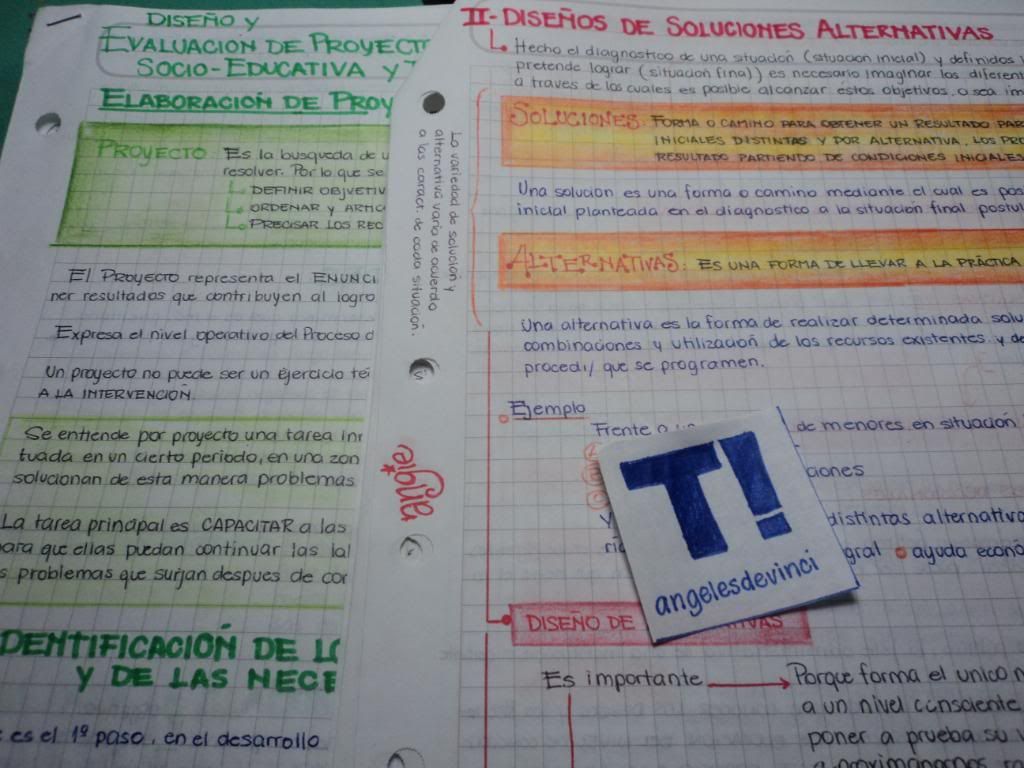 DISEÑO Y
EVALUACION DE PROYECT
SOCIO-EDUCATIVA Y
ELABORACIÓN DE PROY
PROYECTO: Es la busqueda de u
resolver. Por lo que se
DEFINIR OBJVETIV
ORDENAR Y ARTIC
PRECISAR LOS REC
El PROYECTO representa el ENUNCI
ner resultados que contribuyen al logro
Expresa el nivel operativo del Proceso d
Un proyecto no puede ser un ejercicio té
A LA INTERVENCIÓN.
Se entiende por proyecto una tarea inr
tuada en un cierto periodo, en una zon
solucionan de esta manera problemas
La tarea principal es CAPACITAR a las
para que ellas puedan continuar las lal
s problemas que surjan despues de cor
DENTIFICACIÓN DE LO
Y DE LAS NECE
es el 1º paso, en el desarrollo
La variedad de solución y
alternativa varia de acuerdo
a las caract. de cada situación.
angie
II- DISEÑOS DE SOLUCIONES ALTERNATIVAS
Hecho el diagnostico de una situación (situacion inicial) y definidos
pretende lograr (situación final) es necesario imaginar los diferent
a traves de los cuales es posible alcanzar estos objetivos, o sea im
SOLUCIONES: FORMA O CAMINO PARA OBTENER UN RESULTADO PAR
INICIALES DISTINTAS Y POR ALTERNATIVA, LOS PRO
RESULTADO PARTIENDO DE CONDICIONES INICIALES
Una solucion es una forma o camino mediante el cual es pos
inicial planteada en el diagnostico a la situación final postul
ALTERNATIVAS: ES UNA FORMA DE LLEVAR A LA PRÁCTICA
Una alternativa es la forma de realizar determinada solu
combinaciones y utilización de los recursos existentes y de
procedi/ que se programen.
Ejemplo
Frente a un de menores en situación
ciones
Y distintas alternativa
gral o ayuda econó
T!
angelesdevinci
DISEÑO DE IVAS
Es importante Porque forma el unico
a un nivel consciente
poner a prueba su